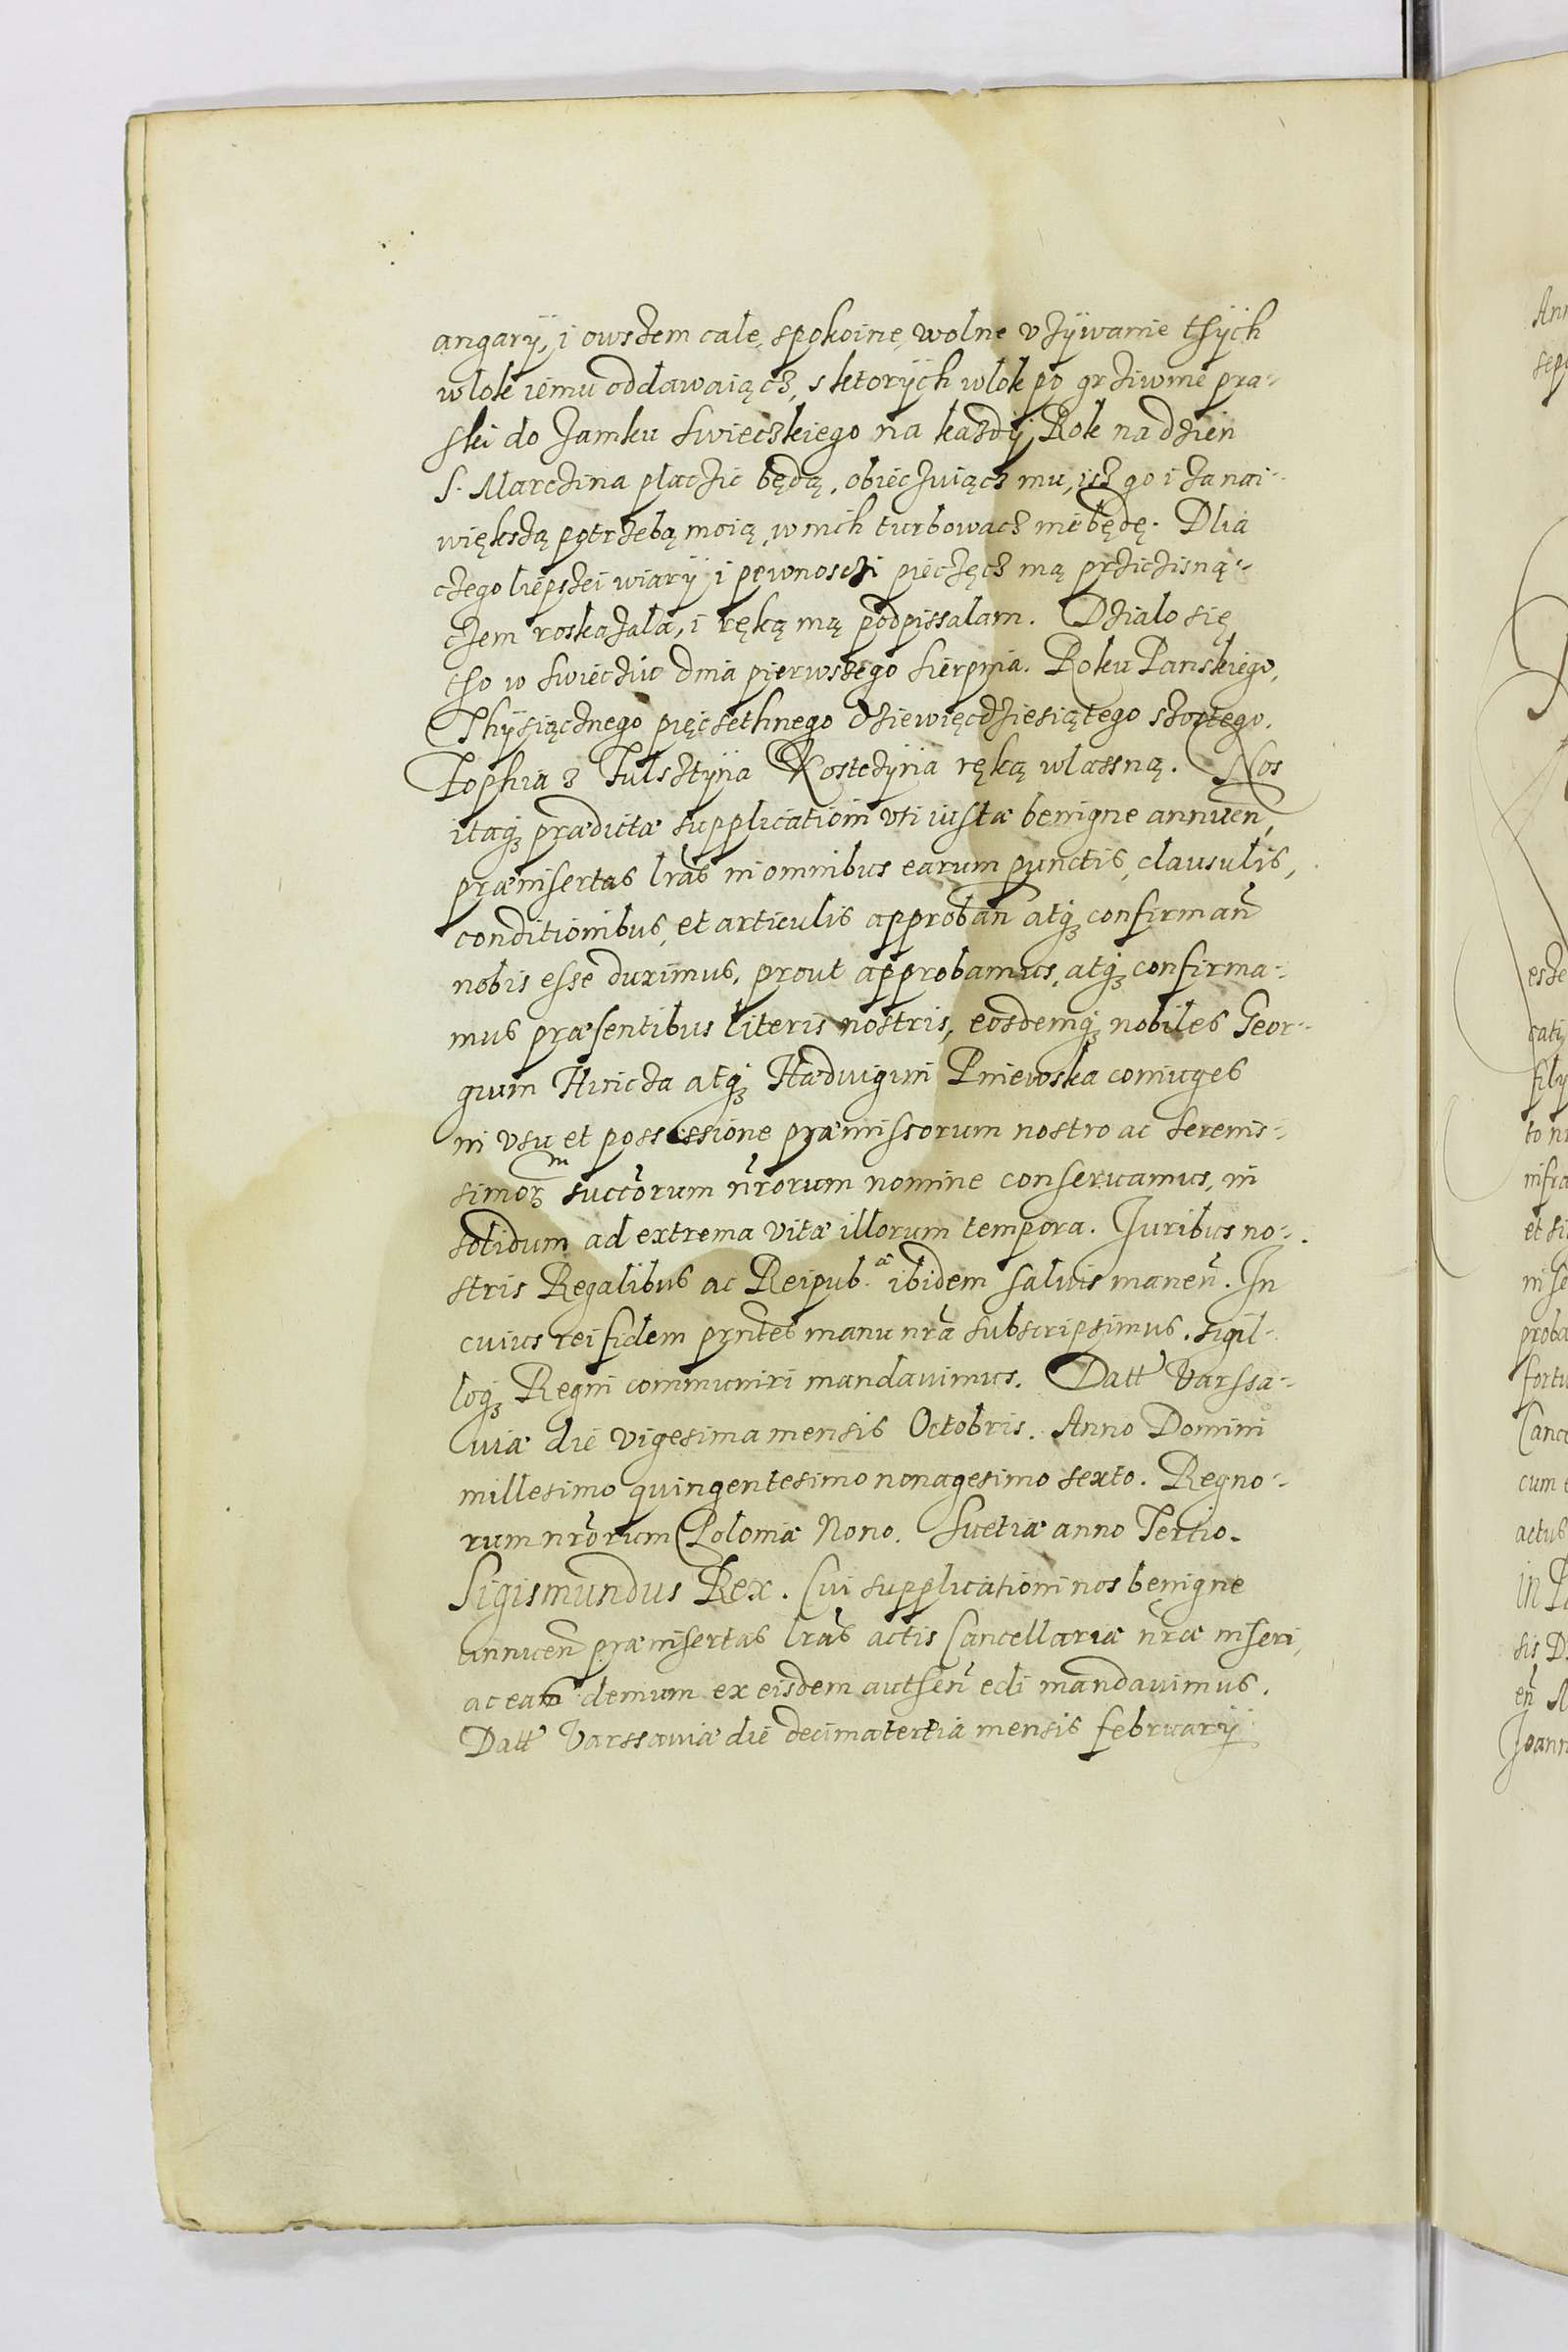 angarÿ, i owszem cale, spokoine, wolne vzÿwanie thÿch
wlok iemu oddawaiącz, s ktorÿch wlok po grziwnie pra-
ski do Zamku Swieczkiego na kazdÿ Rok na dzien
S. Marczina płaczic będą, obieczuiącz mu, isz go i za nai-
większą potrzebą moią, w nich turbowacz nie będę. Dlia
czego liepszei wiarÿ i pewnosczi pieczęcz mą prziczisną-
czem roskazala, i ręką mą podpissalam. Dzialo się
tho w Swiecziu dnia pierwszego Sierpnia. Roku Panskiego,
Thÿsiącznego pięcsethnego dziewięcdziesiątego szostego.
Zophia z Fulsztÿna Kosteczÿna ręką własną. Nos
itaq3 prædictæ supplicationi vti iustæ benigne annuen,
præinsertas lras in omnibus earum punctis, clausulis,
conditionibus, et articulis approban atq3 confirman
nobis esse duximus, prout approbamus, atq3 confirma-
mus præsentibus literis nostris, eosdemq3 nobiles Geor-
gium Hinicza atq3 Hæduigim Pniewska coniuges
in vsu et possessione præmissorum nostro ac Serenis-
simor3 succorum nrorum nomine conseruamus, in
solidum ad extrema vitæ illorum tempora. Juribus no-
stris Regalibus ac Reipub.cæ ibidem saluis manen. In
cuius rei fidem pntes manu nra subscripsimus. Sigil-
loq3 Regni communiri mandauimus. Datt Varssa-
uiæ die vigesima mensis Octobris. Anno Domini
millesimo quingentesimo nonagesimo sexto. Regno-
rum nrorum Poloniæ Nono. Suetiæ anno Tertio.
Sigismundus Rex. Cui supplicationi nos benigne
annuen præinsertas lras actis Cancellariæ nræ inseri,
ac eas demum ex eisdem authen edi mandauimus.
Datt Varssauiæ die decimatertia mensis februarÿ